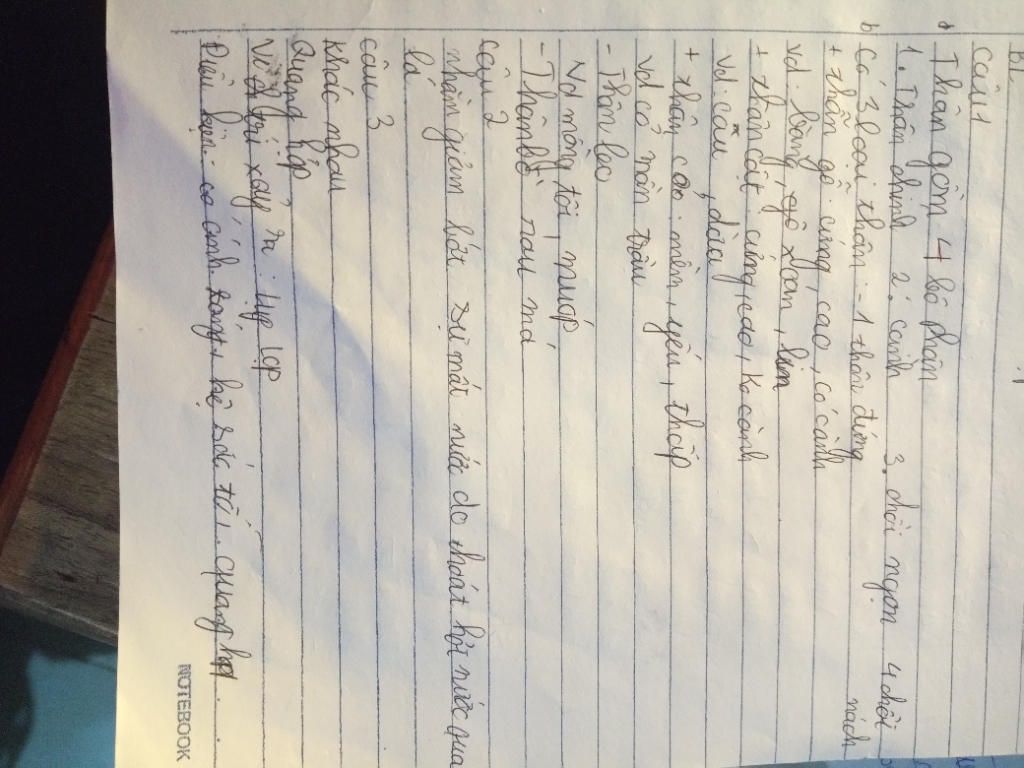 BL
câu 1
a Thân gồm 4 bộ phận
1. Thân chính 2. cành 3. chồi ngọn 4 chồi nách
b có 3 loại thân: - 1 thân đứng
+ thân gỗ: cứng, cao, có cành
vd: bàng, gỗ xoan, lim
+ thân cột: cứng, cao, k cành
vd: cau, dừa
+ thân cỏ: mềm, yếu, thấp
vd cỏ mần trầu
- Thân leo
Vd mồng tơi, mướp
- Thân bò: rau má
câu 2
nhằm giảm bớt sự mất nước do thoát hơi nước qua
lá
câu 3
khác nhau
Quang hợp
Vị trí xảy ra: lục lạp
Điều kiện: có ánh sáng, hệ sắc tố, quang hợp.
NOTEBOOK